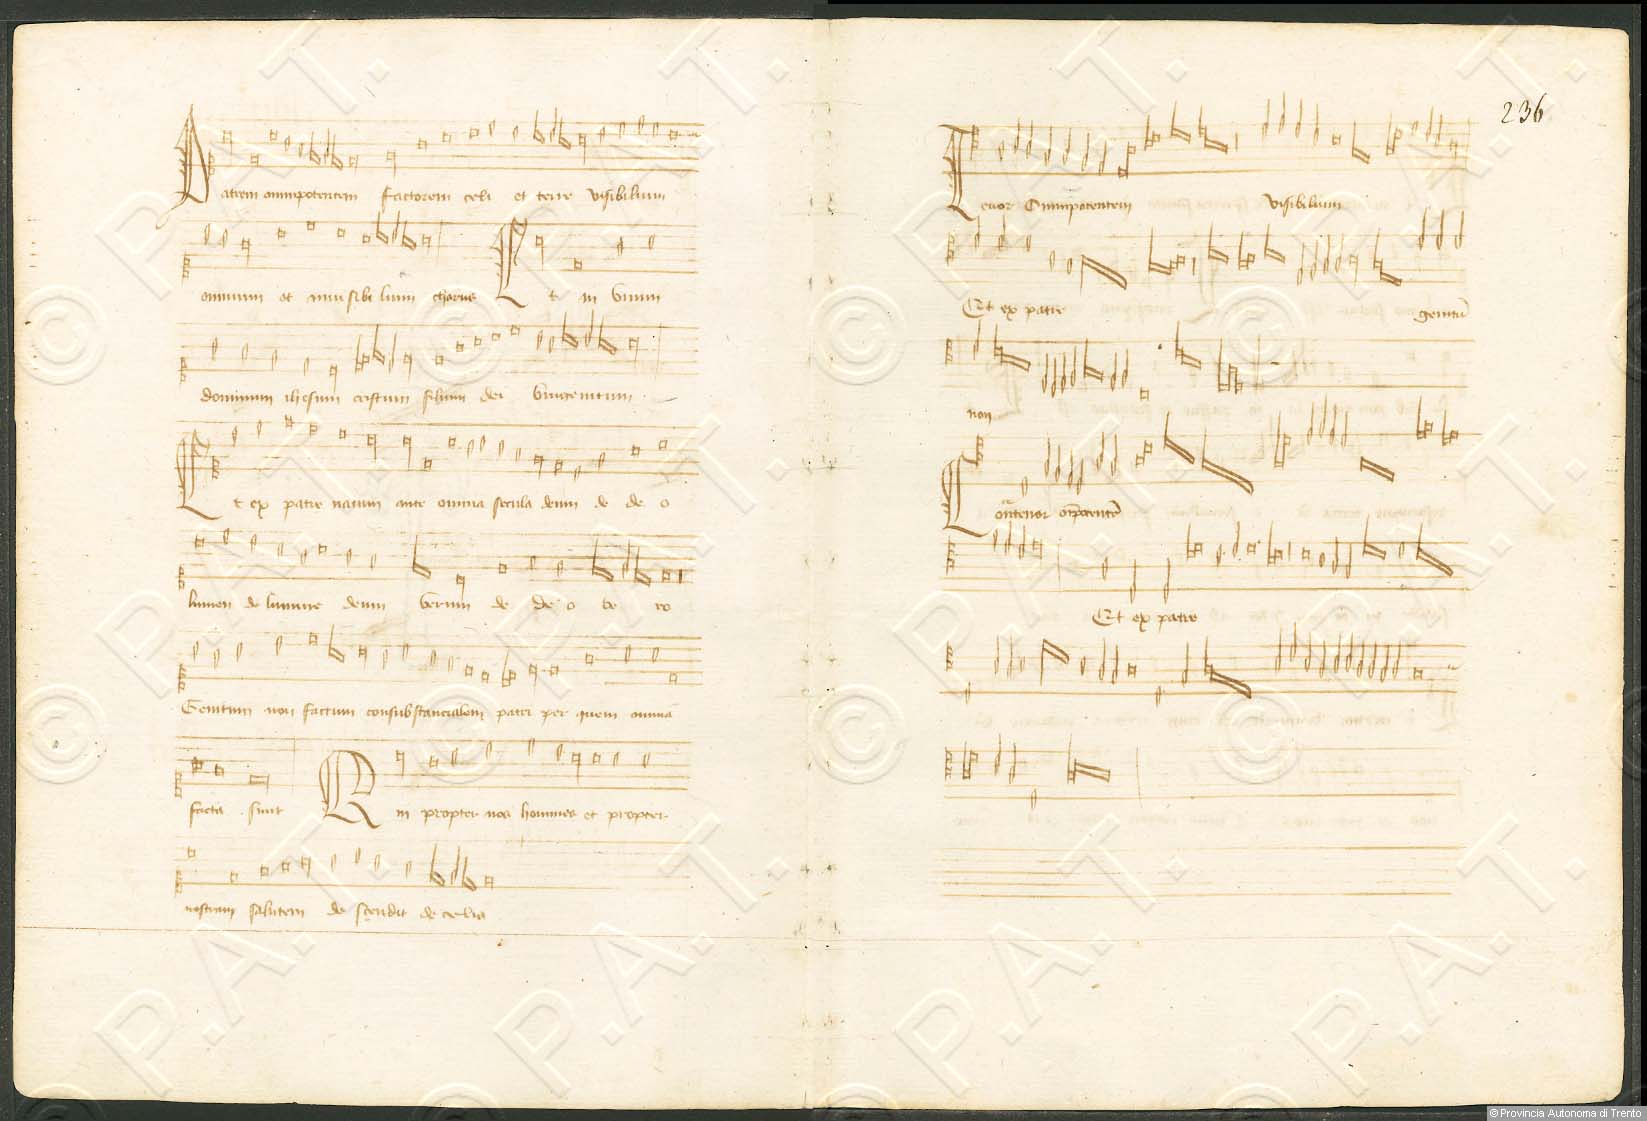 Patrem omnipotentem factorem celi et terre visibilium
omnium et invisibilium chorus Et in vnum
dominum ihesum cristum filium dei vnigenitum
Et ex patre natum ante omnia secula deum de de o
lumen de lumine deum verum de de o ve ro
Genitum non factum consubstancialem patri per quem omnia
facta sunt Qui propter nos homines et propter
nostram salutem de scendit de celis
236
Tenor Omnipotentem visibilium
Et ex patre genitū
non
Et ex patre
© Provincia Autonoma di Trento
© P.A.T.